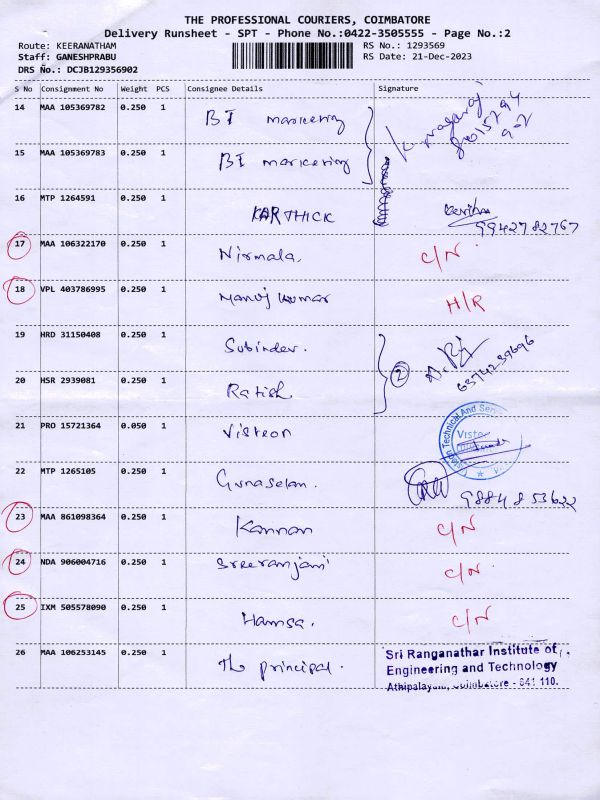 THE PROFESSIONAL COURIERS, COIMBATORE
Delivery Runsheet - SPT - Phone No.:0422-3505555 - Page No.:2
Route: KEERANATHAM RS No.: 1293569
Staff: GANESHPRABU RS Date: 21-Dec-2023
DRS No.: DCJB129356902
S No Consignment No Weight PCS Consignee Details Signature
14 MAA 105369782 0.250 1 BI marketing
15 MAA 105369783 0.250 1 BI marketing
16 MTP 1264591 0.250 1 KARTHICK
9942782767
17 MAA 106322170 0.250 1 Nirmala. C/N
18 VPL 403786995 0.250 1 Manoj Kumar H/R
19 HRD 31150408 0.250 1 Subinder.
2
6374239696
20 HSR 2939081 0.250 1 Ratish
21 PRO 15721364 0.050 1 Visteon
22 MTP 1265105 0.250 1 Gunaselan. 98848 53622
23 MAA 861098364 0.250 1 Kannan C/N
24 NDA 906004716 0.250 1 Sreeranjani C/N
25 IXM 505578090 0.250 1 Hamsa. C/N
26 MAA 106253145 1 0.250 The principal.
Sri Ranganathar Institute of
Engineering and Technology
Athipalayam, Coimbatore - 641 110.